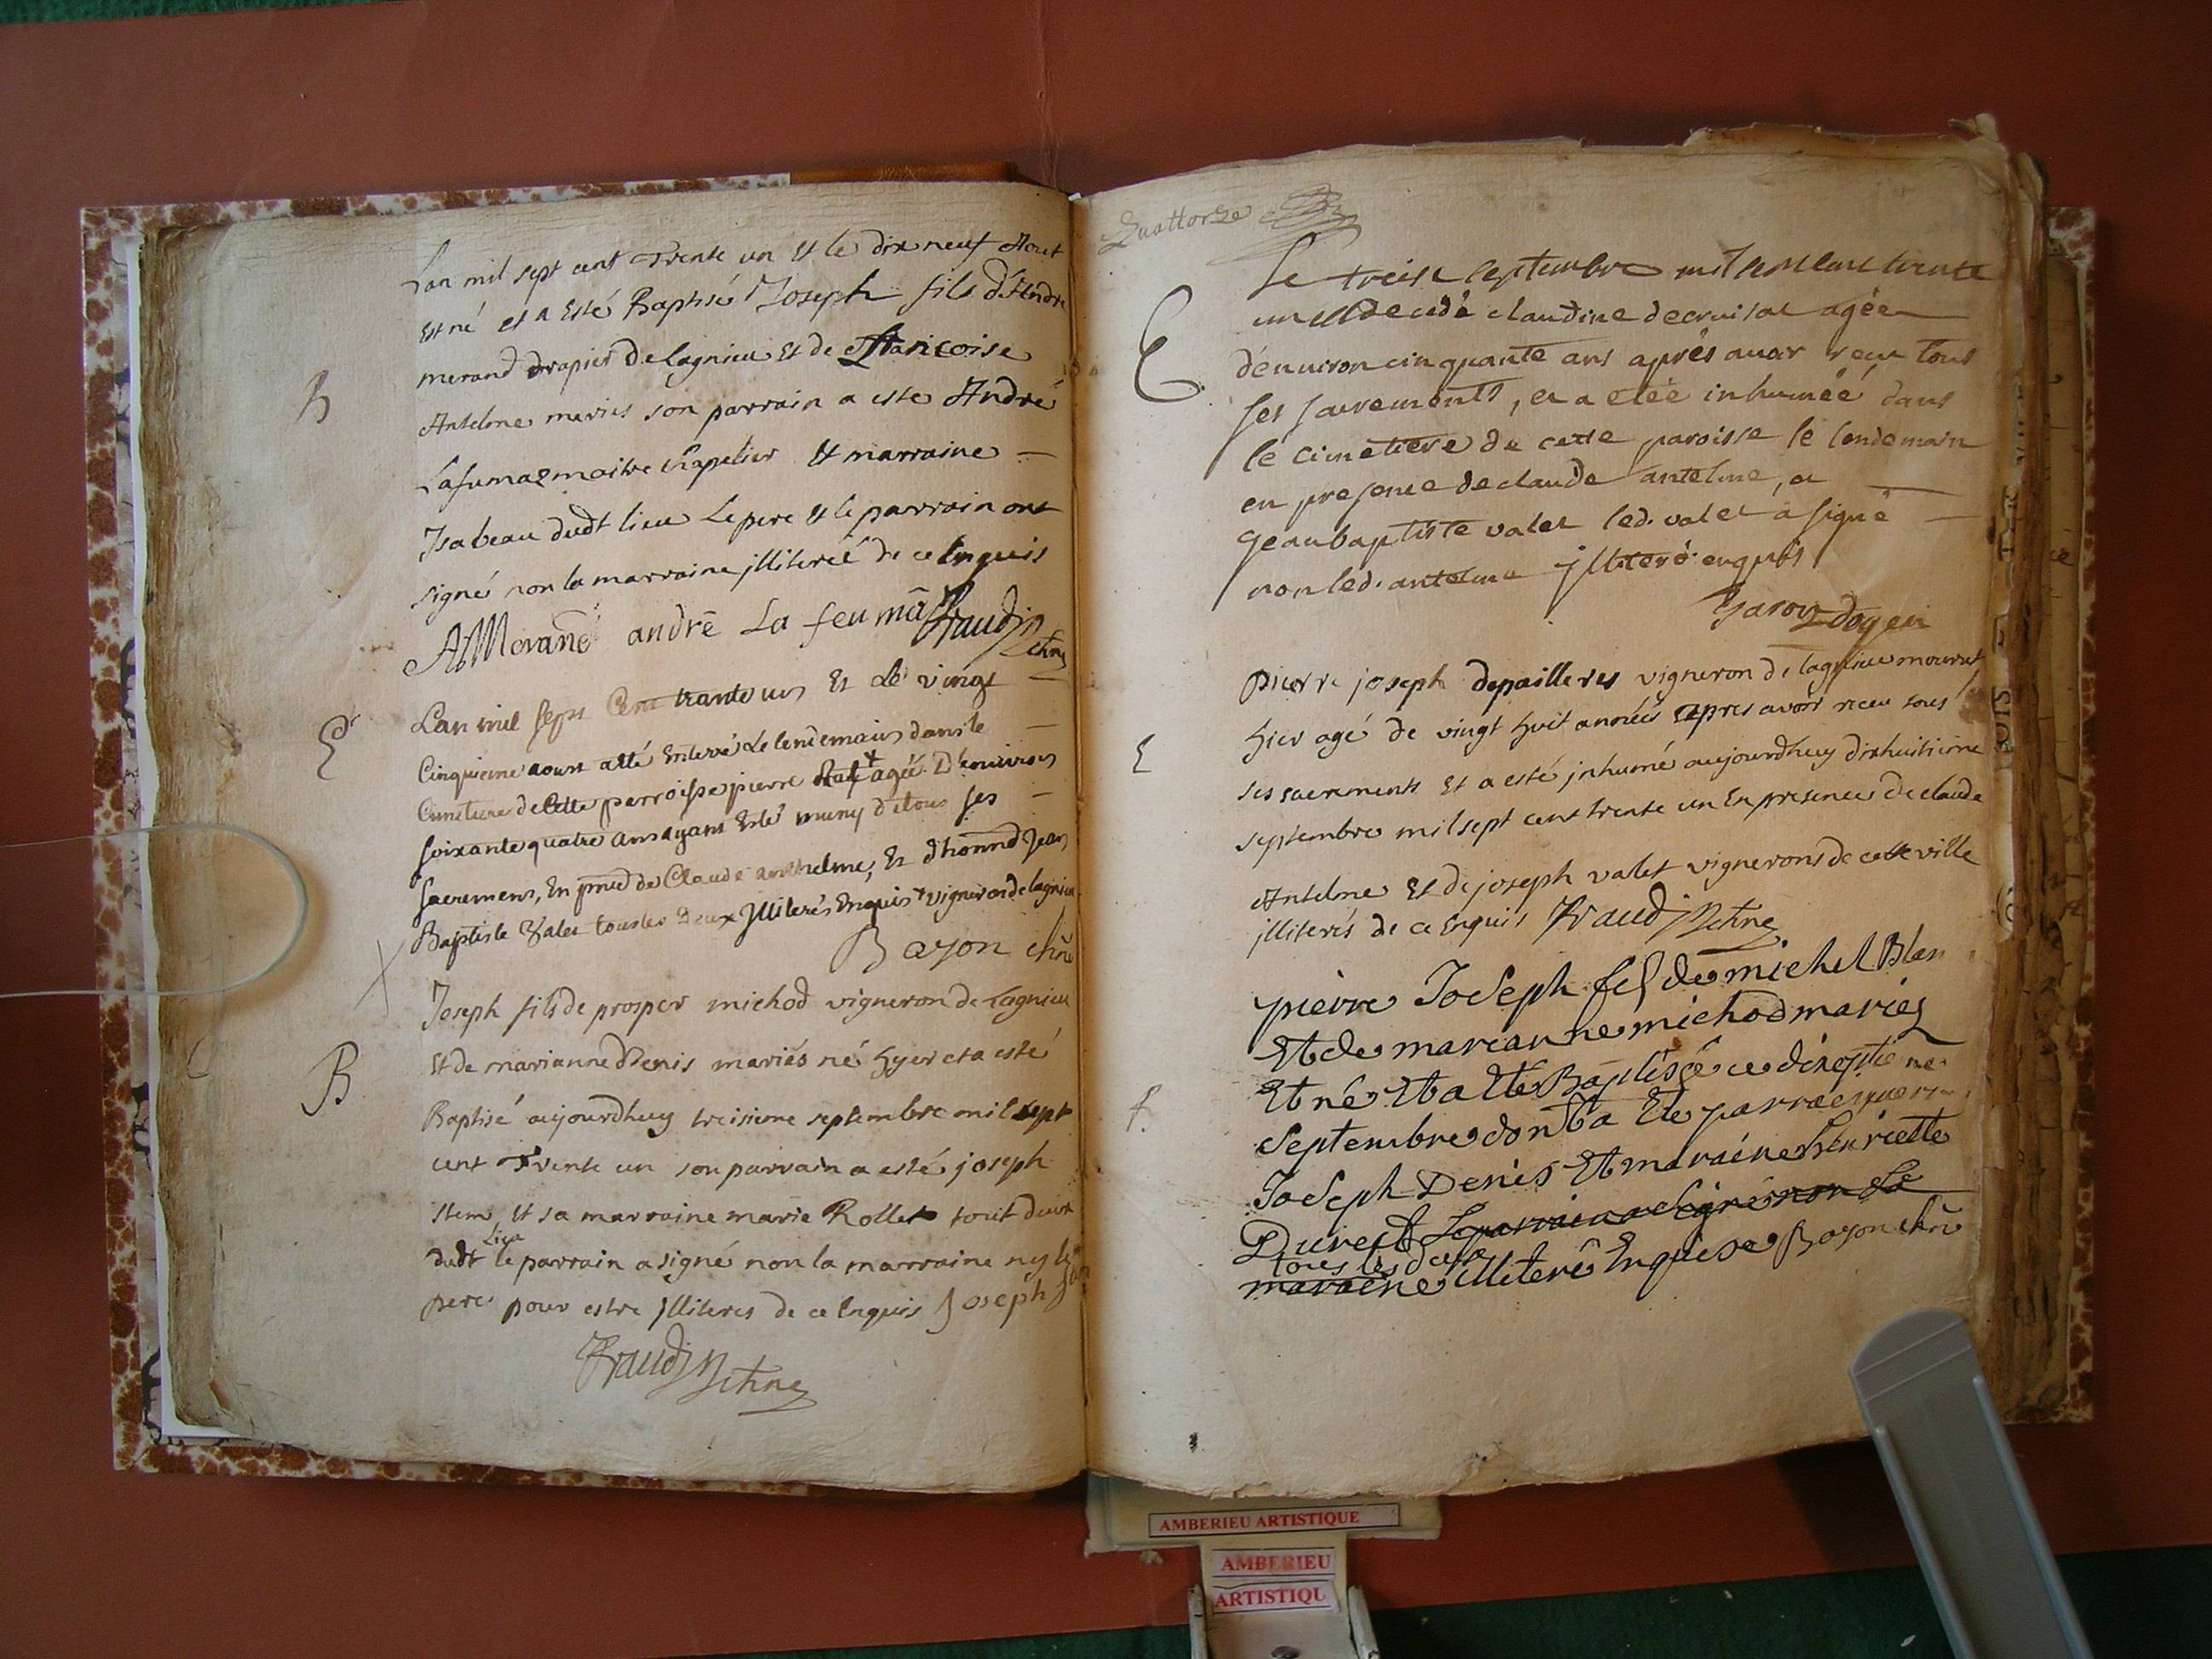 Lan mil sept cent Trente un Et le dix neuf Aout
Est né et a Esté Baptisé Joseph fils d'Andre
merand drapier de Lagnieu Et de francoise
Antelme mariés son parrain a este André
Lafumaz maitre chapelier Et marraine
Isabeau dudt lieu Le pere Et le parrain ont
signé non la marraine jlliterée de ce Enquis
B
AMerane andrē La feumā fraudin chne
E
Lan mil sept Cent trante un Et Le vingt
Cinquieme aoust a Eté Enterré Le lendemain dans le
Cimetiere de Cette perroisse pierre agée D'environ
soixante quatre ans ayant Esté muny de tous ses
sacremens, En pnce de Claude anthelme, Et d'honnd Jean
Baptiste Valet tous les Deux Jlliterés Enquis + vigneron de lagnieu
Bayon chne
Joseph fils de prosper michod vigneron de Lagnieu
Et de marianne Denis mariés né hyer et a esté
B
Baptisé aujourdhuy treisieme septembre mil sept
cent Trente un son parrain a esté joseph
Et sa marraine marie Rollet tout deux
Lieu
dudt le parrain a signé non la marraine ny le
pere pour estre jlliteres de ce Enquis Joseph
fraudin chne
Quattorze
Le treise septembre mil sept cent trente
E
un est decedé claudine decruisat agée
d'énuiron cinquante ans aprés auoir reçu tous
ses sacrements, et a etée inhumée dans
le cimetiere de cette paroisse le lendemain
en presence de claude antelme, et
jean baptiste valet led. valet a signé
non led. antelme jlliteré enquis
doyen
pierre joseph depailleres vigneron de lagnieu mourut
hier agé de vingt huit années apres avoir receu tous
E
ses sacrements Et a esté jnhumé aujourdhuy dixhuitieme
septembre mil sept cent trente un En presence de claude
Antelme Et de joseph valet vignerons de cette ville
jlliterés de ce Enquis fraudin chne
pierre Joseph fils de michel Blan
Et de marianne michod mariés
Et né Et a Eté Baptisé ce
septembre dont a Eté parrain
Joseph Denis Et maraine henriette
Duret Le parrain a signé non la
tous les deux
maraine illiteré Enquis Bayon chne
AMBERIEU ARTISTIQUE
AMBERIEU
ARTISTIQU